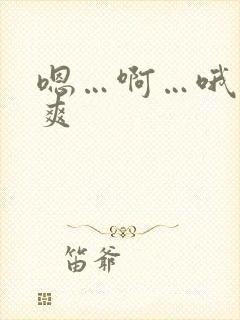 嗯…啊…哦
爽
笛爷